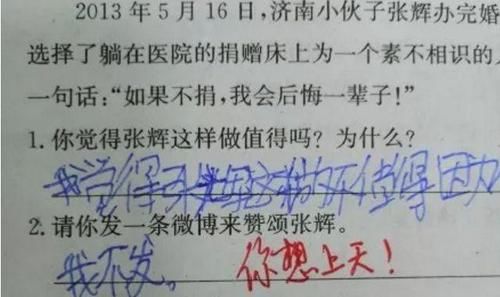 2013 年 5 月 16 日,济南小伙子张辉办完婚
选择了躺在医院的捐赠床上为一个素不相识的
一句话:“如果不捐,我会后悔一辈子!”
1. 你觉得张辉这样做值得吗? 为什么?
我觉得张辉这样做不值得因为
2. 请你发一条微博来赞颂张辉。
我不发。 你想上天!